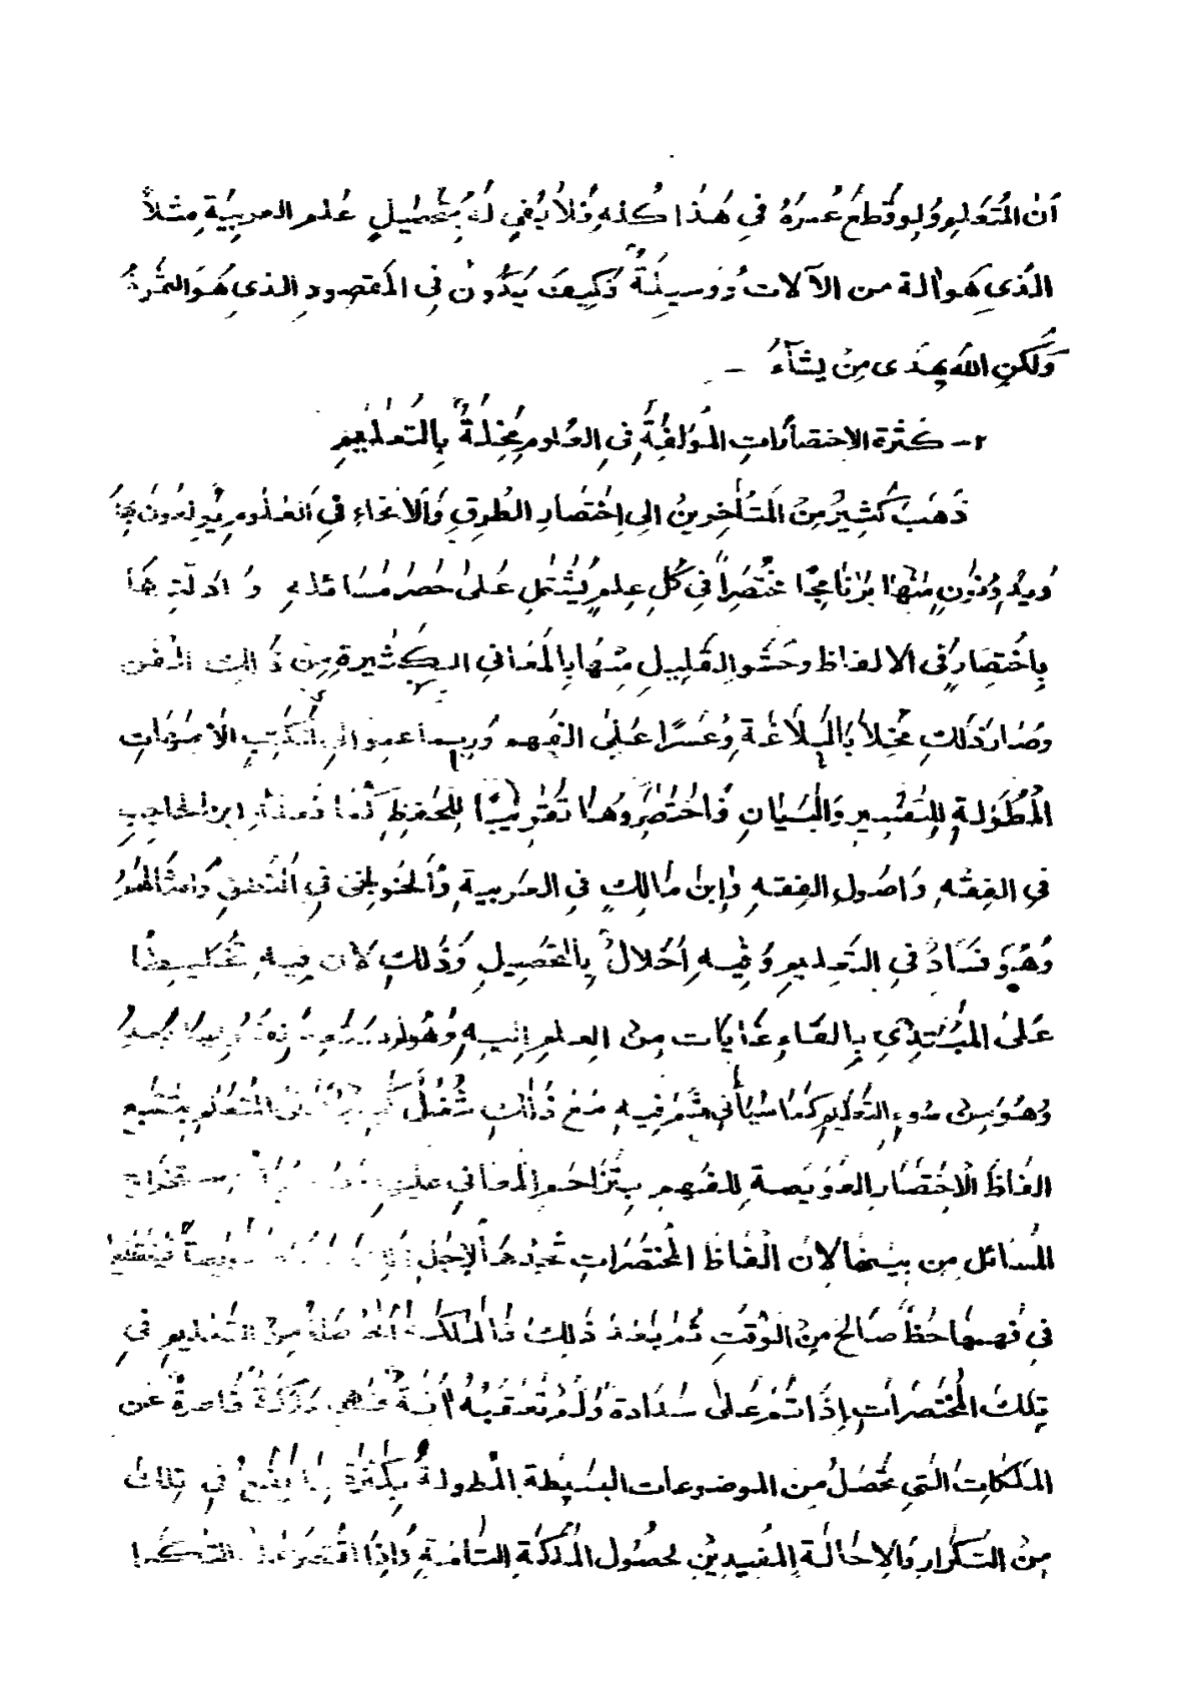 أن المُتَعَلم وَلو قُطعَ عُمرَهُ في هذا كُلهِ فَلا يُفي لهُ بِتَحصيلِ عُلم العربِيَةِ مثلاً
الذي هَو آلة من الآلات وَوَسيلَةٌ فَكَيفَ يَكُون فى المَقصودِ الذى هُوَ الثَّمرةُ
وَلكنِ الله يهدى مِنْ يشآءُ -
٢- كَثرة الاختصارات المُولفَةِ في العلوم مُخلَةٌ بِالتَعليمِ
ذَهبَ كَثيرُ مِنَ المتأخرينُ الى اِختصارِ الطُرقِ وَالانحاءِ فى العُلوم يُولعُونَ بِهَا
وُيدِوِنوُن مِنْها بَرنَامِجًا مختَصِراً فى كُلِ عِلمٍ يُشتَمل عَلى حَصر مُسَائله وَ ادلَتِهَا
بِاختِصَارٍ فى الالفاظ وحَشو القَليلِ مِنْهَا بالمَعانى الكَثيرة مِن ذَالِك الفَن
وصَار ذلك مُخِلاً بَالبَلاغَة وَعَسرًا عَلى الفهم وَربما عمدوا الى الكُتبِ الأمهَاتِ
المُطَولةِ للِتَفسير وَالبَيانِ فَاختَصرُوهَا تَقرِيبًا لِلحفِظ كَما فَعله ابن الحاجِبِ
فى الفِقه وَاصُول الفِقهِ وَابن مَالِكٍ فى العَربية وَالخَونجى فى المَنطق وَامثَالهُمْ
وَهُوَ فَسَادُ فى التَعليم وَفيهِ اَخلالٌ بِالتَحصِيلِ وَذلك لاَن فيه تَخليطًا
عَلى المُبتَدى بِالقَاء غَايَات مِن العِلم اِليهِ وَهُو لم يستعد لقبولها بَعدُ
وَهُوَ مِن سُوءِ التَعليم كَما سُيَأتى ثم فيه مَع ذَالِك شُغلٌ كَبيرٌ على المُتَعلم بِتَتَبع
الفَاظ الاختِصَار العوَيصة لِلفَهم بِتَزاحم المعانى عليها وصعوبة استخراج
المُسَائل مِن بِينها لان اَلفاظ المُختَصَراتِ تَجِدُها لاِجل ذلك صعبة عويصةً فينقطع
فى فَهمِها حظٌ صَالح مِن الوقتِ ثم بَعد ذلك فَالملكَة الحاصلة مِن التَعليم فى
تِلك المُختَصَراتِ اذَا تُم عَلى سَدادة وَلم تَعقبهُ افَةٌ فهى مَلكَةٌ قاصرةٌ عَن
المَلكاتُ التى تَحصلُ مِن الموضوعات البَسيطة المُطولةُ بِكثرة ما يَقعُ فى تِلك
مِن التكَرارِ وَالاِحالَة المفيدين لحصُول المَلكَة التَامةِ وَاِذا اقتصر على التكرار